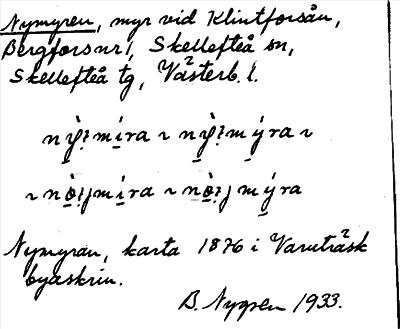 Nymyren, myr vid Klintforsån,
Bergfors nr 1, Skellefteå sn,
Skellefteå tg, Västerb. l.
Nymyran, karta 1876 i Varuträsk
byaskrin.
B. Nygren 1933.